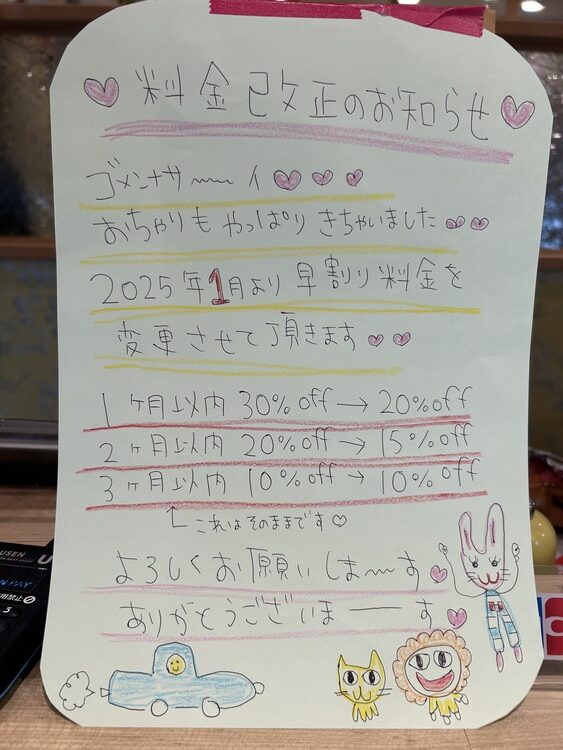 料金改正のお知らせ
ゴメンナサ〜〜イ
おちゃりもやっぱりきちゃいました
2025年1月より早割り料金を
変更させて頂きます
1ヶ月以内 30%off→20%off
2ヶ月以内 20%off→15%off
3ヶ月以内 10%off→10%off
↑これはそのままです♡
よろしくお願いしま〜す
ありがとうございまーーす
USEN
PAY